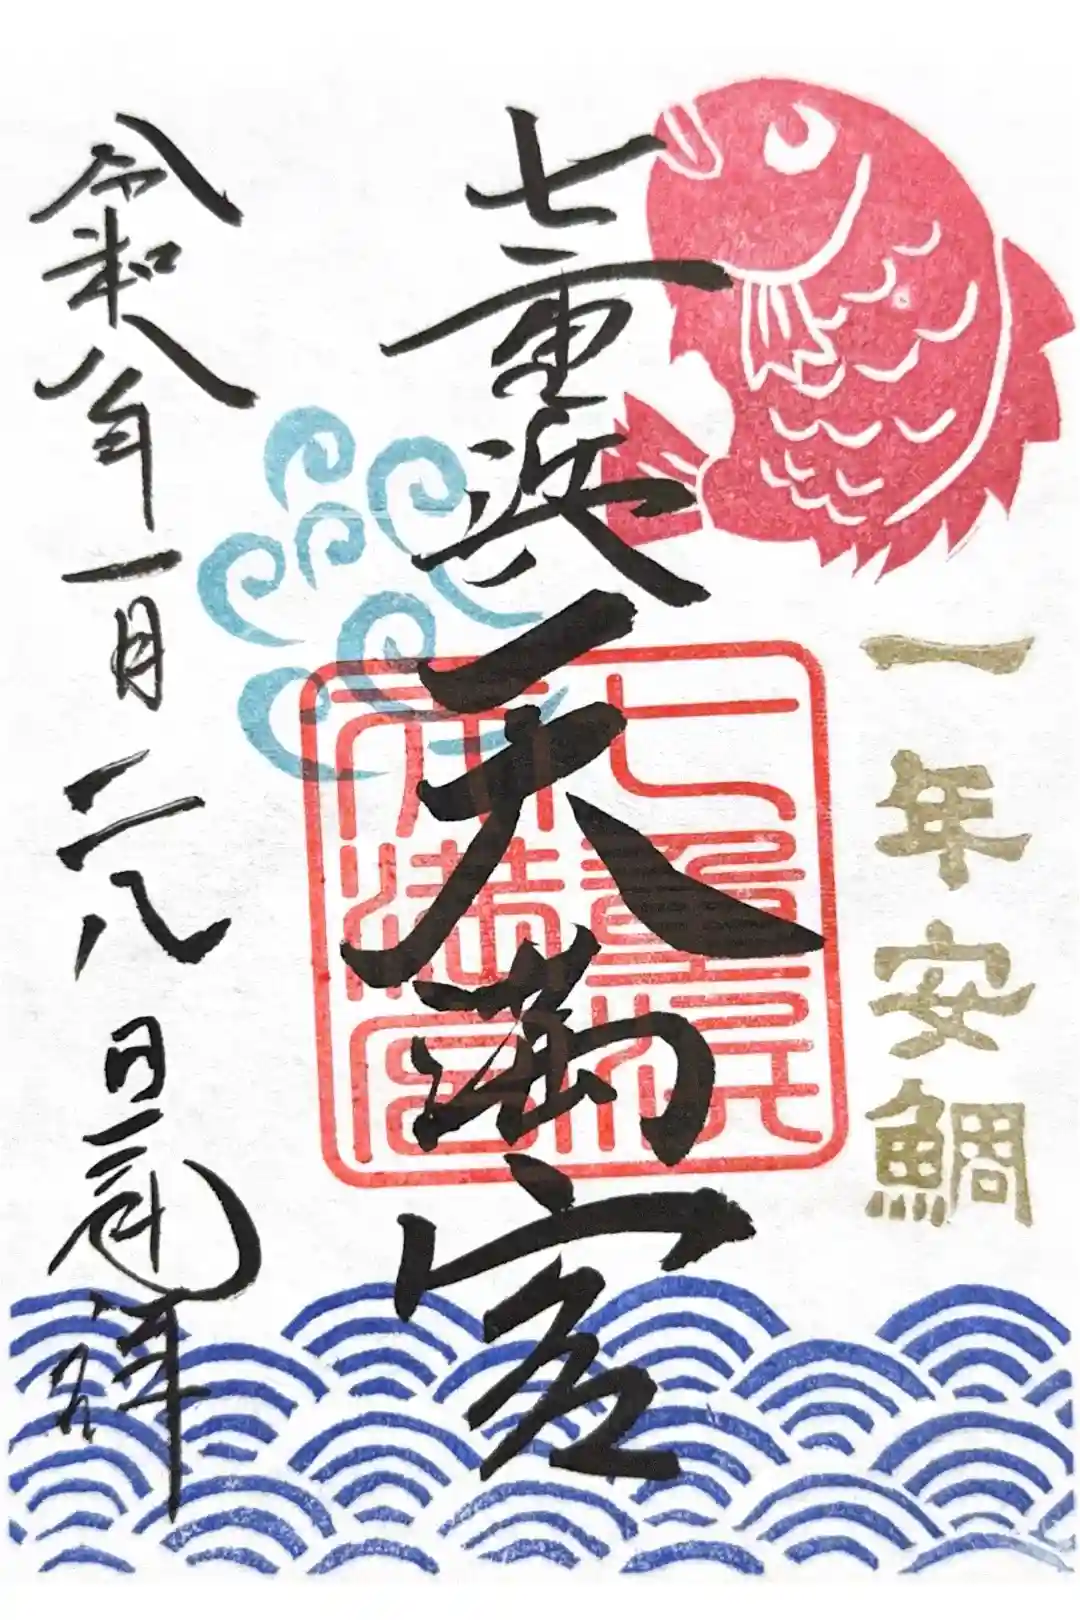 一年安鯛
七重浜天満宮
七重浜
天満宮
令和八年一月二八日